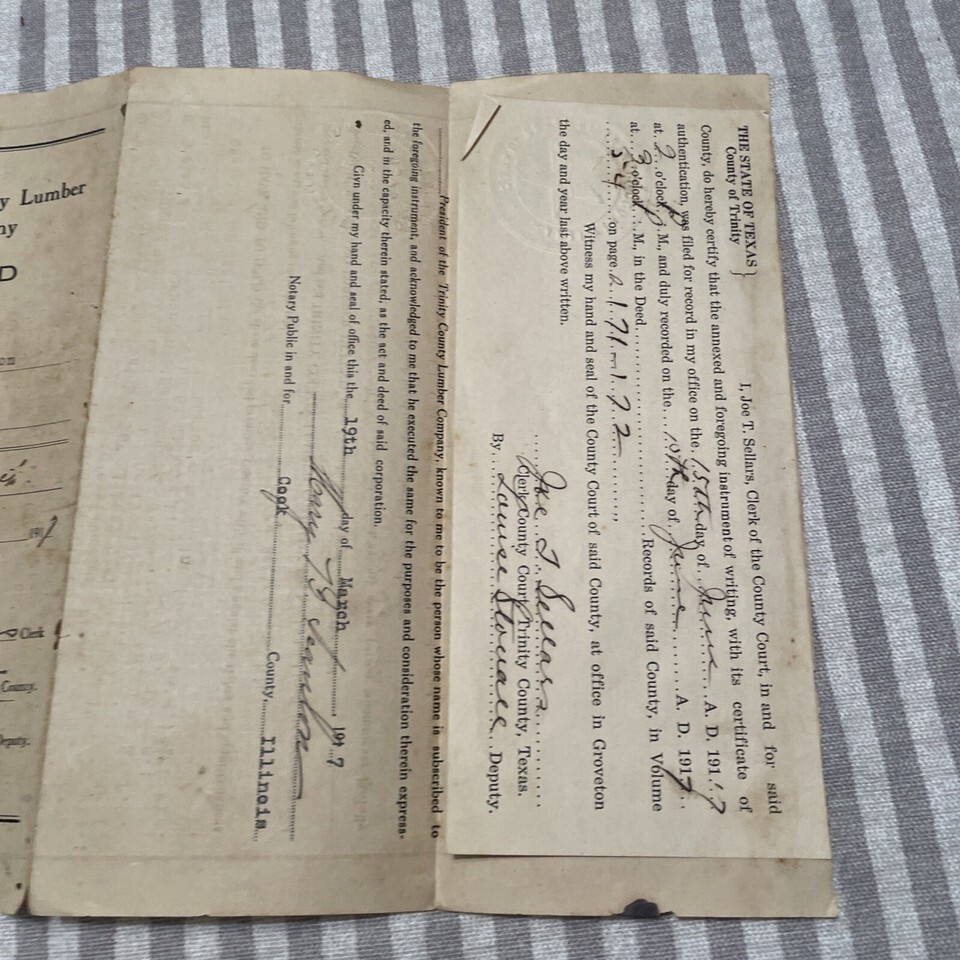 THE STATE OF TEXAS }
County of Trinity
I, Joe T. Sellars, Clerk of the County Court, in and for said
County, do hereby certify that the annexed and foregoing instrument of writing, with its certificate of
authentication, was filed for record in my office on the 15th day of June A. D. 1917
at 2 o'clock P. M., and duly recorded on the 15th day of June A. D. 1917
at 3 o'clock P. M., in the Deed Records of said County, in Volume
54 on page 171-172
Witness my hand and seal of the County Court of said County, at office in Groveton
the day and year last above written.
Joe T. Sellars
Clerk County Court Trinity County, Texas.
By Deputy.
President of the Trinity County Lumber Company, known to me to be the person whose name is subscribed to
the foregoing instrument, and acknowledged to me that he executed the same for the purposes and consideration therein express-
ed, and in the capacity therein stated, as the act and deed of said corporation.
Givn under my hand and seal of office this the 19th day of March 1917
Notary Public in and for Cook County, Illinois
y Lumber
ny
D
on
191
Clerk
County.
Deputy.